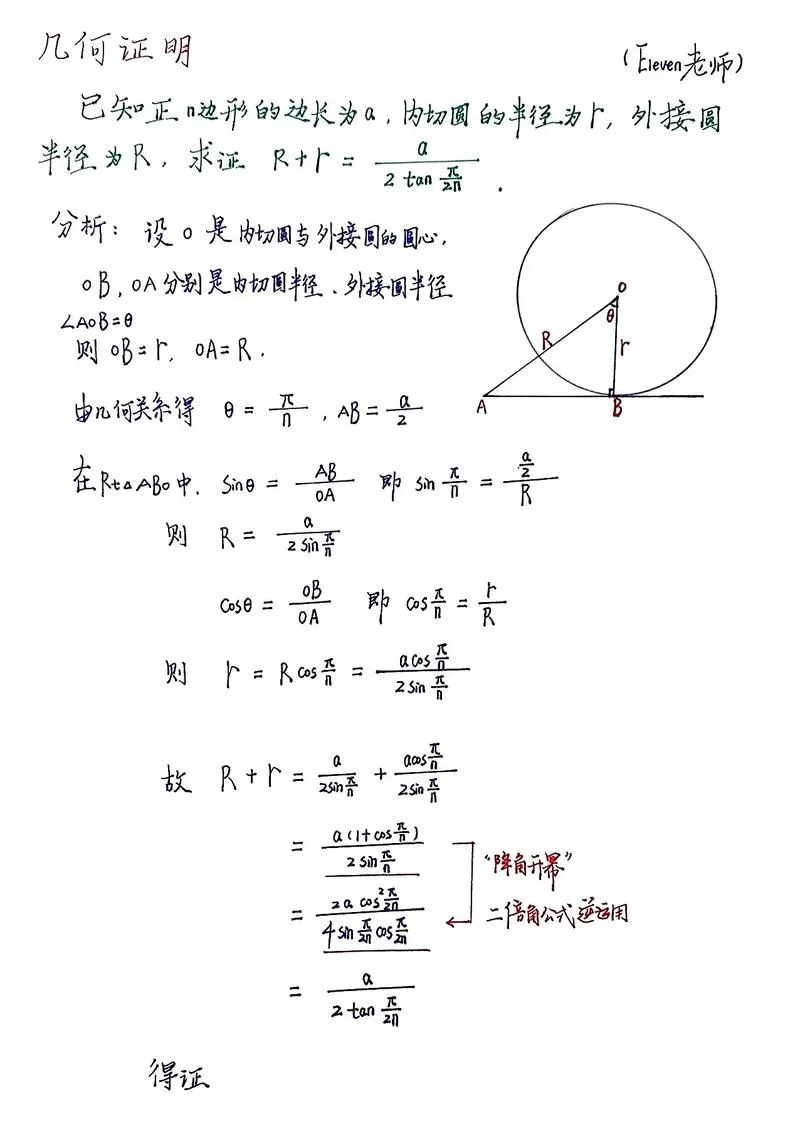 几何证明
（Eleven老师）
已知正n边形的边长为a，内切圆的半径为r，外接圆
半径为R，求证 R+r = a / (2 tan π/2n) .
分析：设O是内切圆与外接圆的圆心，
OB，OA分别是内切圆半径、外接圆半径
∠AOB=θ
则OB=r，OA=R．
O
θ
R
r
A
B
由几何关系得 θ = π/n ，AB = a/2
在Rt△ABO中．Sinθ = AB/OA 即 sin π/n = (a/2)/R
则 R = a / (2 sin π/n)
cosθ = OB/OA 即 cos π/n = r/R
则 r = R cos π/n = (a cos π/n) / (2 sin π/n)
故 R + r = a / (2sin π/n) + (a cos π/n) / (2sin π/n)
= a(1+cos π/n) / (2 sin π/n)
“降角升幂”
= (2a cos² π/2n) / (4 sin π/2n cos π/2n)
二倍角公式逆运用
= a / (2 tan π/2n)
得证